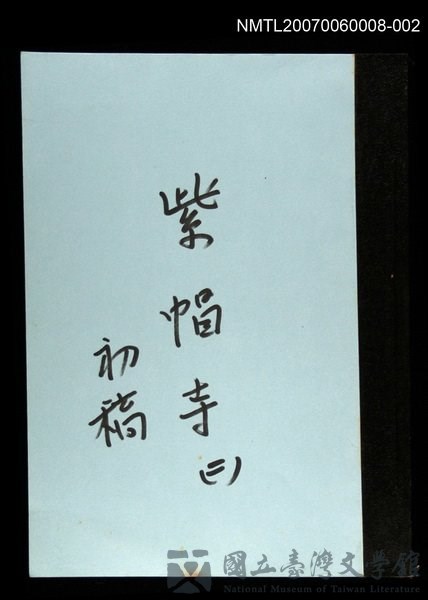 NMTL20070060008-002
紫帽寺(二)
初稿
國立臺灣文學館
National Museum of Taiwan Literature